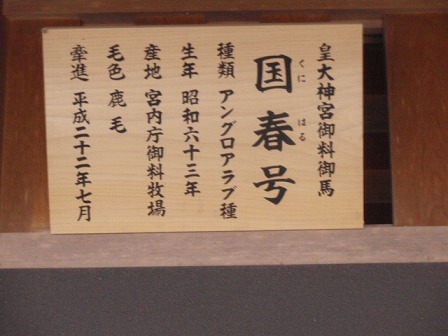 皇大神宮御料御馬
国春号
くに はる
種類 アングロアラブ種
生年 昭和六十三年
産地 宮内庁御料牧場
毛色 鹿毛
牽進 平成二十二年七月